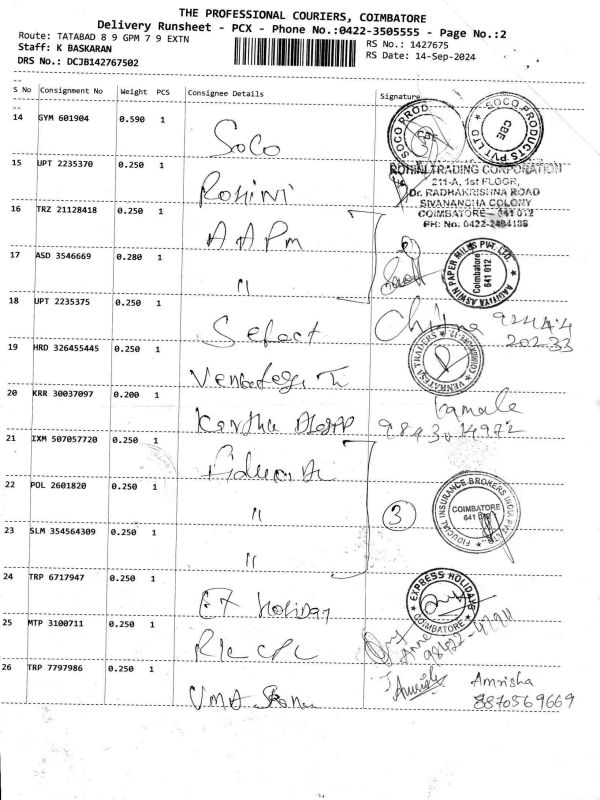 THE PROFESSIONAL COURIERS, COIMBATORE
Delivery Runsheet - PCX - Phone No.:0422-3505555 - Page No.:2
Route: TATABAD 8 9 GPM 7 9 EXTN
RS No.: 1427675
Staff: K BASKARAN
RS Date: 14-Sep-2024
DRS No.: DCJB142767502
S No Consignment No Weight PCS Consignee Details Signature
14 GYM 601904 0.590 1 Soco
SOCO PROD CBE
SOCO PRODUCTS PVT LTD CBE
15 UPT 2235370 0.250 1 Rohini
ROHINI TRADING CORPORATION
211-A, 1st FLOOR,
Dr. RADHAKRISHNA ROAD
SIVANANDHA COLONY
COIMBATORE - 641 012
PH: No: 0422-2494188
16 TRZ 21128418 0.250 1 AAPM
17 ASD 3546669 0.280 1 "
AADITYA ASWIN PAPER MILLS PVT. LTD. Coimbatore 641 012
18 UPT 2235375 0.250 1 Select
92444
20233
19 HRD 326455445 0.250 1
VENKATESA TRADERS
20 KRR 30037097 0.200 1
Kamala
21 IXM 507057720 0.250 1
22 POL 2601820 0.250 1 "
3
FIDUCIAL INSURANCE BROKERS INDIA PVT LTD. COIMBATORE 641 012
23 SLM 354564309 0.250 1 "
24 TRP 6717947 0.250 1 EX Holiday
EXPRESS HOLIDAYS COIMBATORE
25 MTP 3100711 0.250 1
26 TRP 7797986 0.250 1
Amrisha
8870569669